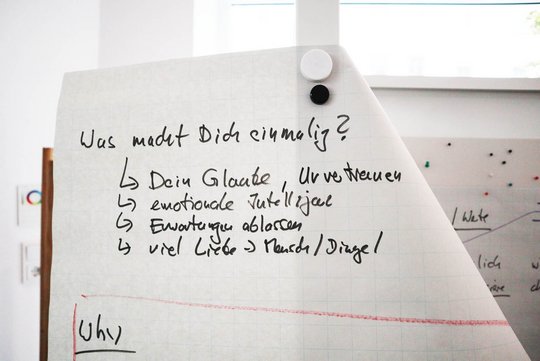 Was macht Dich einmalig?
↳ Dein Glaube, Urvertrauen
↳ emotionale Intelligenz
↳ Erwartungen ablassen
↳ viel Liebe → Mensch/Dinge/
Why
/ Werte
lich